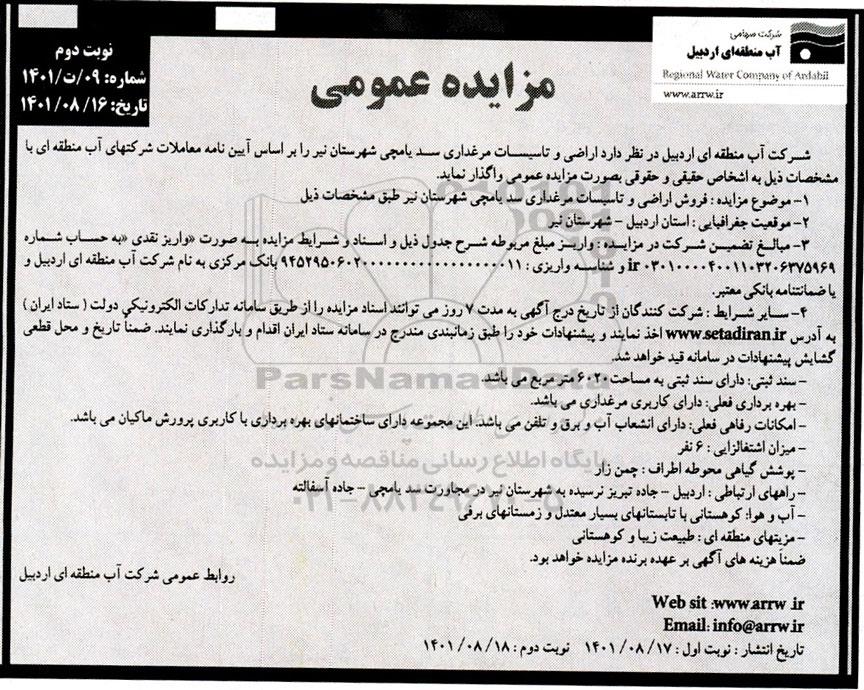 شرکت سهامی
آب منطقه‌ای اردبیل
Regional Water Company of Ardabil
www.arrw.ir
نوبت دوم
شماره: ۰۹/ت/۱۴۰۱
تاریخ: ۱۴۰۱/۰۸/۱۶
مزایده عمومی
شرکت آب منطقه ای اردبیل در نظر دارد اراضی و تاسیسات مرغداری سد یامچی شهرستان نیر را بر اساس آیین نامه معاملات شرکتهای آب منطقه ای با
مشخصات ذیل به اشخاص حقیقی و حقوقی بصورت مزایده عمومی واگذار نماید.
۱- موضوع مزایده : فروش اراضی و تاسیسات مرغداری سد یامچی شهرستان نیر طبق مشخصات ذیل
۲- موقعیت جغرافیایی : استان اردبیل - شهرستان نیر
۳- مبالغ تضمین شرکت در مزایده : واریز مبلغ مربوطه شرح جدول ذیل و اسناد و شرایط مزایده به صورت «واریز نقدی «به حساب شماره
ir ۰۳۰۱۰۰۰۰۴۰۰۱۱۰۳۲۰۶۳۷۵۹۶۹ و شناسه واریزی : بانک مرکزی به نام شرکت آب منطقه ای اردبیل و
یا ضمانتنامه بانکی معتبر.
۴- سایر شرایط : شرکت کنندگان از تاریخ درج آگهی به مدت ۷ روز می توانند اسناد مزایده را از طریق سامانه تدارکات الکترونیکی دولت ( ستاد ایران )
به آدرس www.setadiran.ir اخذ نمایند و پیشنهادات خود را طبق زمانبندی مندرج در سامانه ستاد ایران اقدام و بارگذاری نمایند. ضمناً تاریخ و محل قطعی
گشایش پیشنهادات در سامانه قید خواهد شد.
- سند ثبتی: دارای سند ثبتی به مساحت ۶۰۲۰ متر مربع می باشد.
- بهره برداری فعلی: دارای کاربری مرغداری می باشد.
- امکانات رفاهی فعلی: دارای انشعاب آب و برق و تلفن می باشد. این مجموعه دارای ساختمانهای بهره برداری با کاربری پرورش ماکیان می باشد.
- میزان اشتغالزایی : ۶ نفر
- پوشش گیاهی محوطه اطراف : چمن زار
- راههای ارتباطی : اردبیل - جاده تبریز نرسیده به شهرستان نیر در مجاورت سد یامچی - جاده آسفالته
- آب و هوا: کوهستانی با تابستانهای بسیار معتدل و زمستانهای برفی
- مزیتهای منطقه ای : طبیعت زیبا و کوهستانی
ضمناً هزینه های آگهی بر عهده برنده مزایده خواهد بود.
روابط عمومی شرکت آب منطقه ای اردبیل
Web sit :www.arrw .ir
Email: info@arrw.ir
تاریخ انتشار : نوبت اول : ۱۴۰۱/۰۸/۱۷ نوبت دوم : ۱۴۰۱/۰۸/۱۸
ParsNamadData
پایگاه اطلاع رسانی مناقصه و مزایده